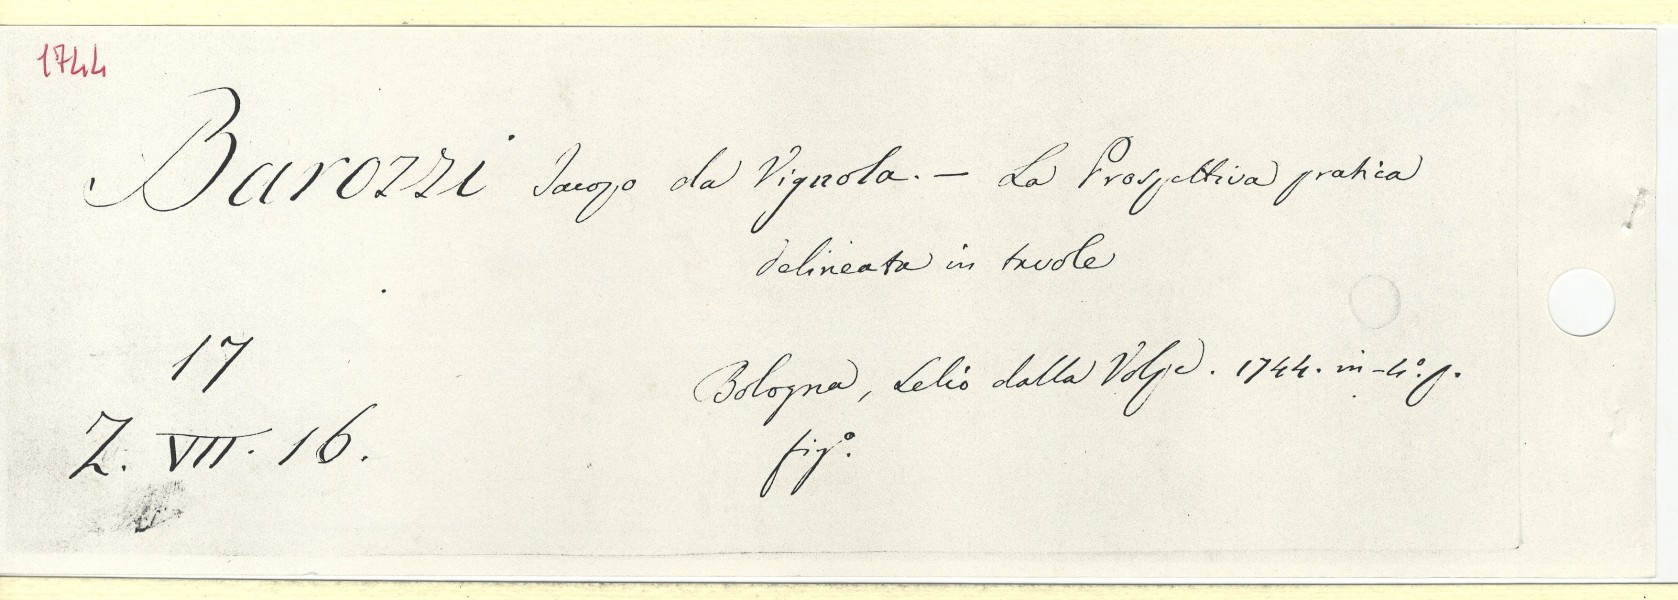 1744
Barozzi Jacopo da Vignola. — La Prospettiva pratica
delineata in tavole
Bologna, Lelio dalla Volpe. 1744. in-4.° p.
fig.°
17
Z. VII. 16.